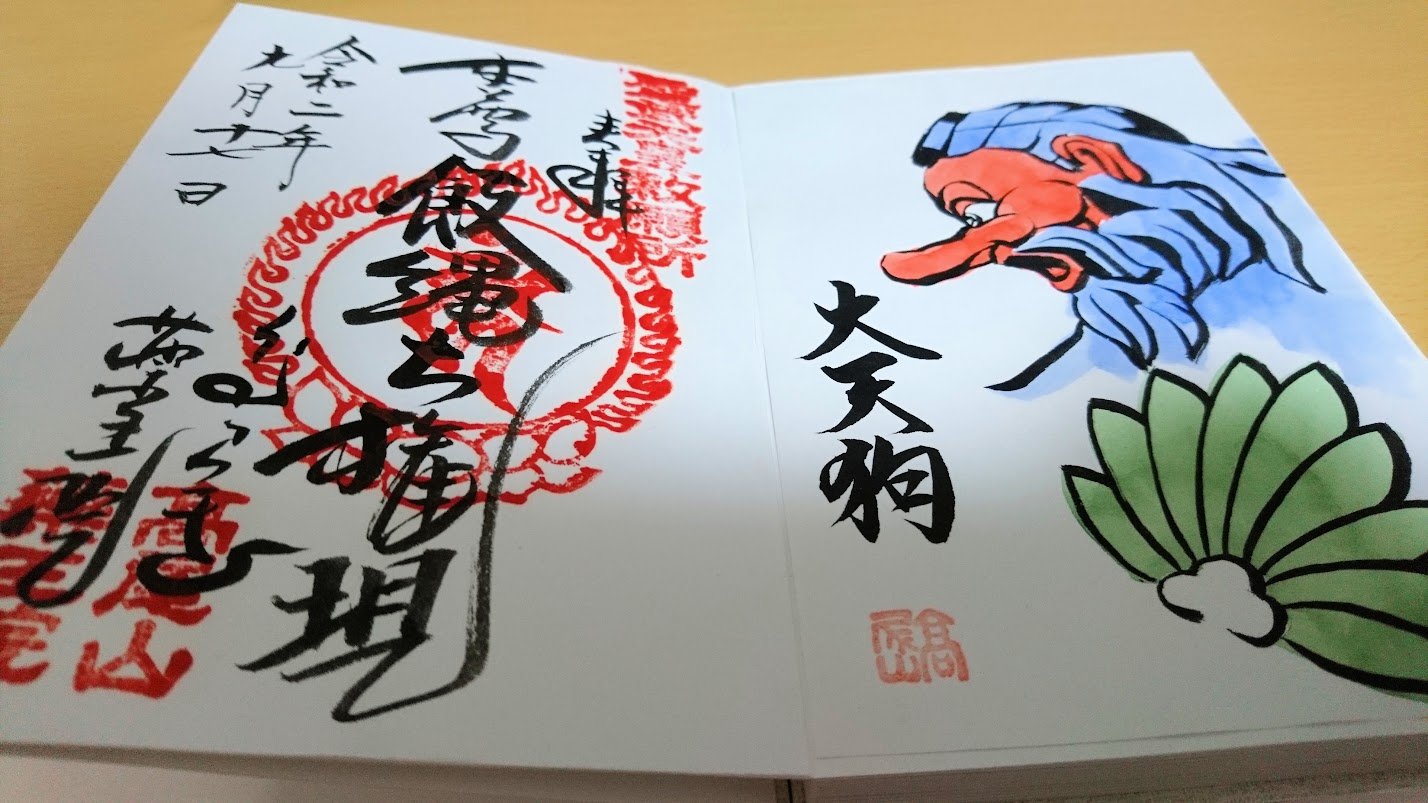 大天狗
高尾山
奉拝
本尓飯縄大権現
令和二年
九月十七日
高尾山
薬王院
高尾山
薬王院